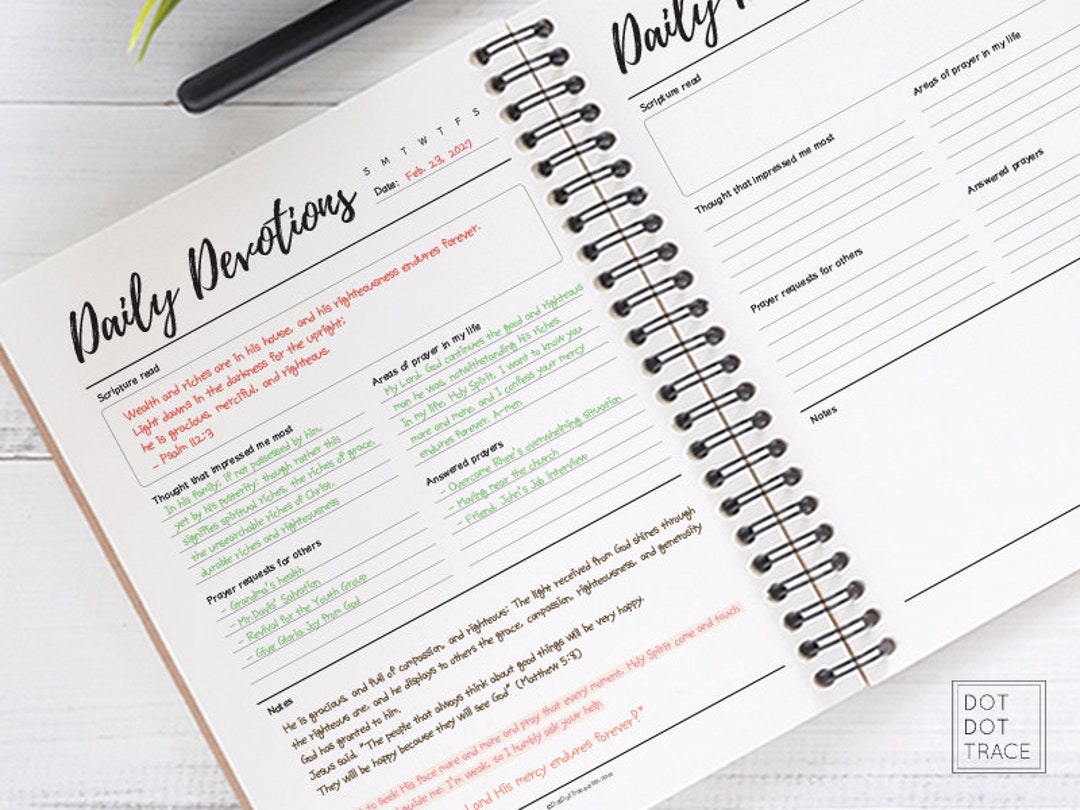 Daily Devotions
S M T W T F S
Date: Feb. 23, 2027
Scripture read
Wealth and riches are in his house, and his righteousness endures forever.
Light dawns in the darkness for the upright;
he is gracious, merciful, and righteous.
- Psalm 112:3
Thought that impressed me most
In his family; if not possessed by him,
yet by his posterity; though rather this
signifies spiritual riches, the riches of grace,
the unsearchable riches of Christ,
durable riches and righteousness
Prayer requests for others
- Grandma's health
- Mr.Davis' Salvation
- Revival for the Youth Group
- Give Gloria Joy from God
Areas of prayer in my life
My Lord God continues the good and righteous
man he was, notwithstanding his riches
In my life, Holy Spirit, I want to know you
more and more, and I confess your mercy
endures forever. A-men
Answered prayers
- Overcome Rhee's overwhelming situation
- Moving near the church
- Friend, John's Job Interview
Notes
He is gracious, and full of compassion, and righteous: The light received from God shines through
the righteous one, and he displays to others the grace, compassion, righteousness, and generosity
God has granted to him.
Jesus said, "The people that always think about good things will be very happy.
They will be happy because they will see God" (Matthew 5:8)
to seek His face more and more and pray that every moment, Holy Spirit come and touch
guide me. I'm weak, so I humbly ask your help
and His mercy endures forever!"
Daily
Scripture read
Thought that impressed me most
Prayer requests for others
Areas of prayer in my life
Answered prayers
Notes
DOT
DOT
TRACE